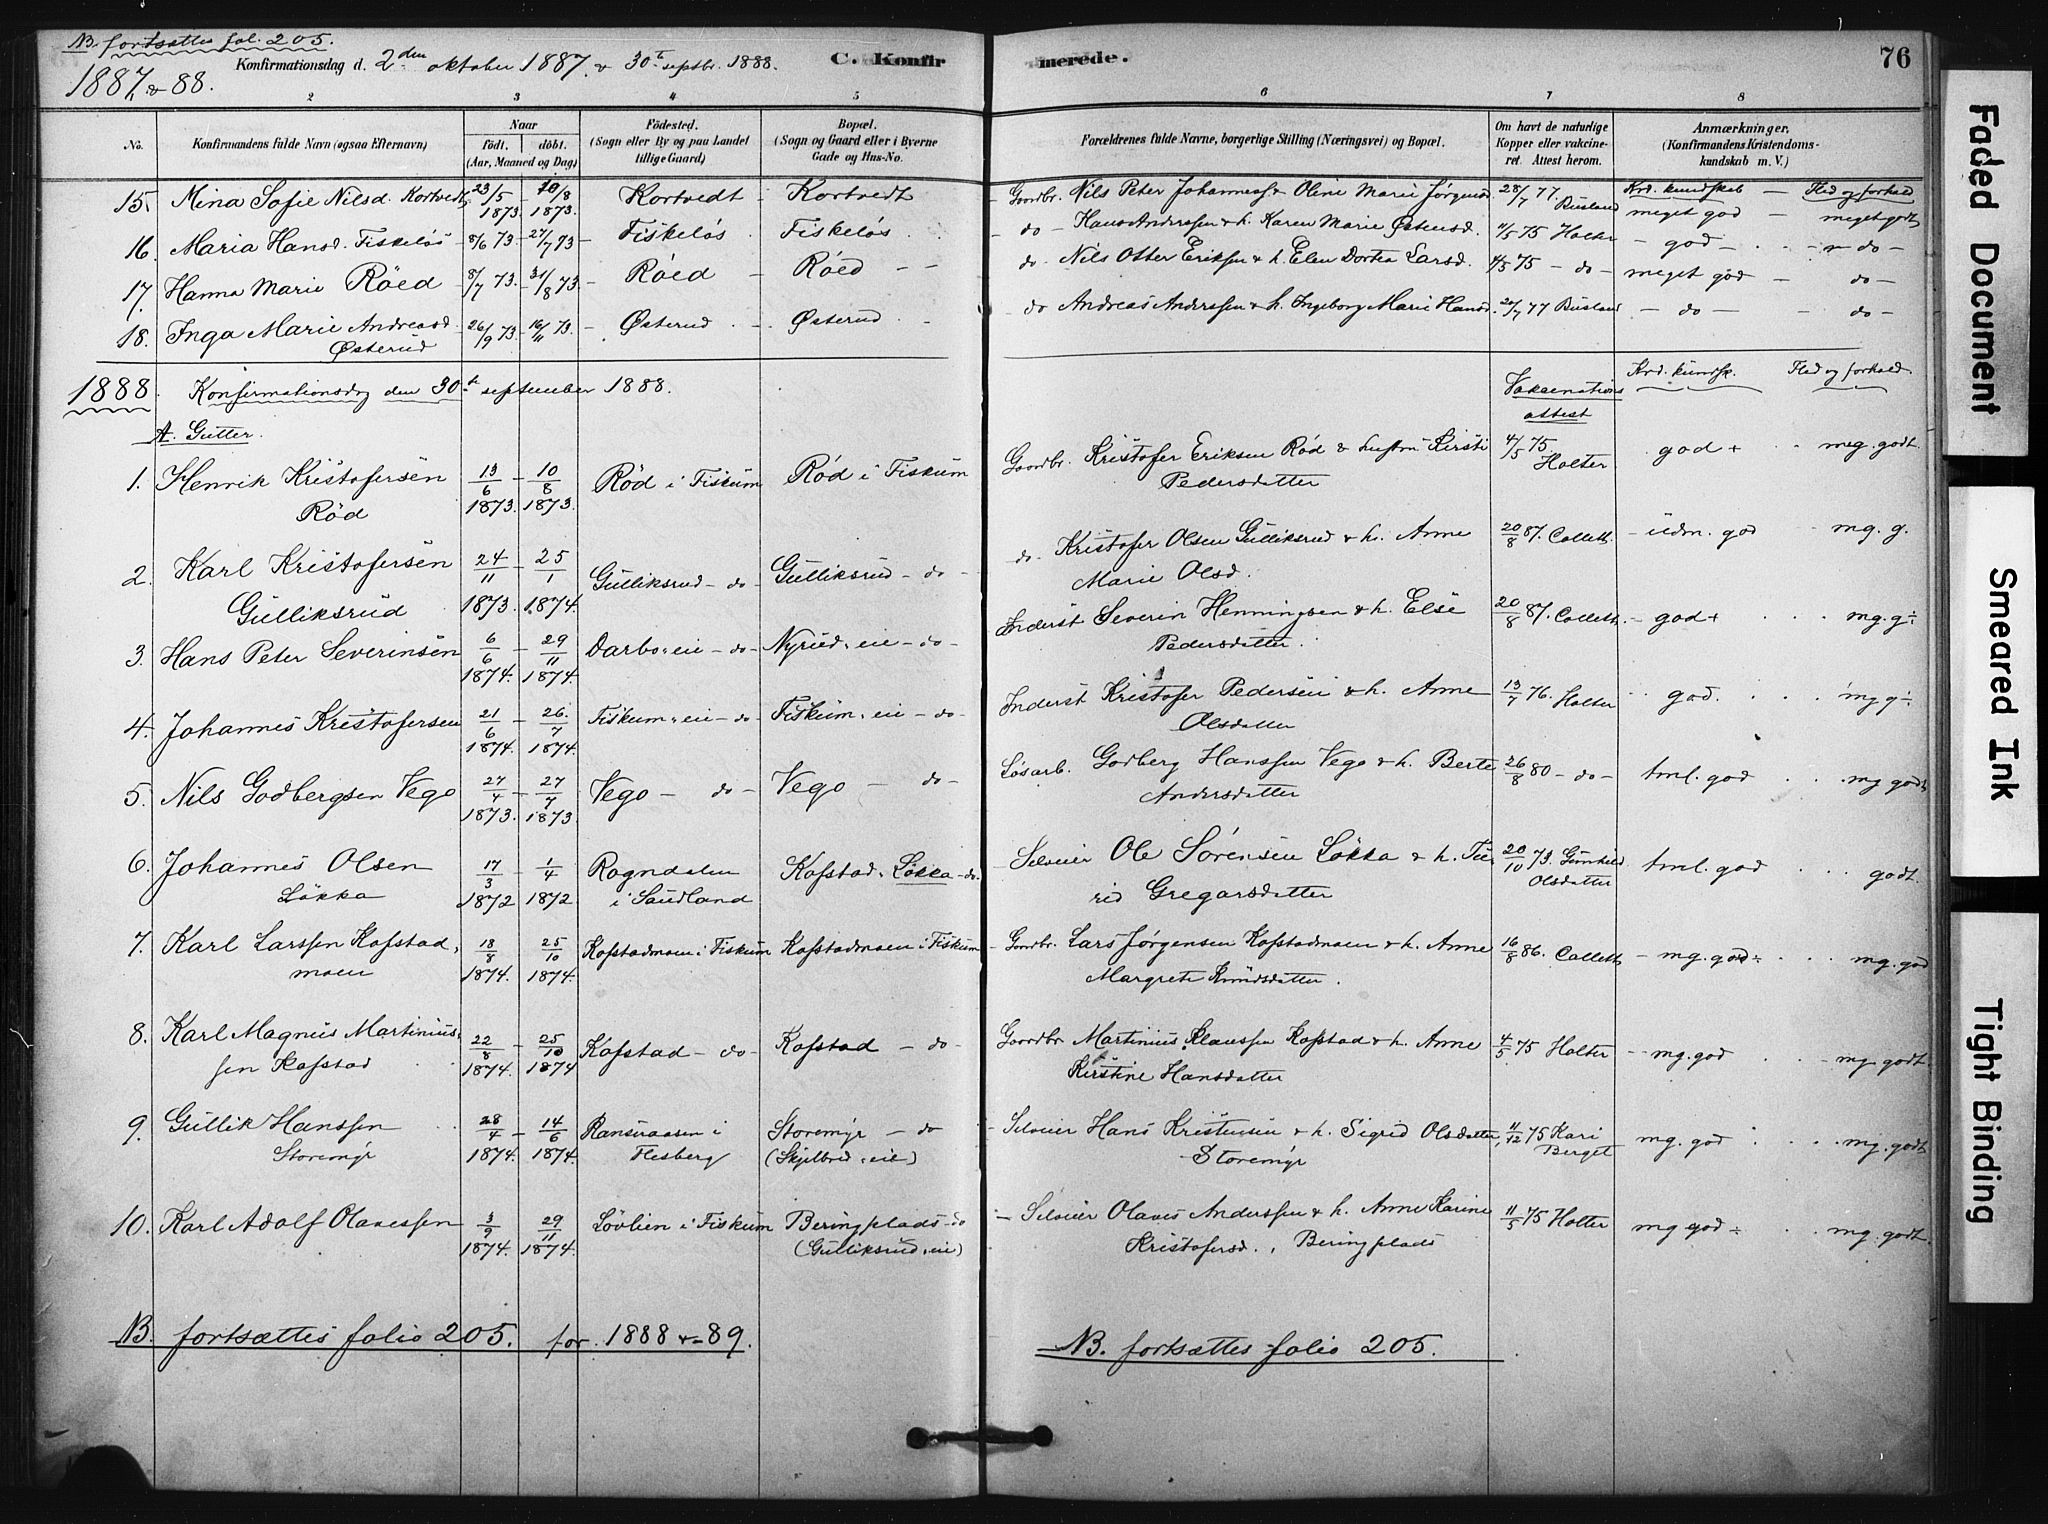 NB. fortsættes fol. 205.
1887 & 88.
Konfirmationsdag d. 2den oktober 1887. & 30te septbr. 1888.
C. Konfirmerede.
76
2 3 4 5 6 7 8
No.
Konfirmandens fulde Navn (ogsaa Efternavn)
Naar
födt. döbt.
(Aar, Maaned og Dag)
Födested.
(Sogn eller By og paa Landet
tillige Gaard)
Bopæl.
(Sogn og Gaard eller i Byerne
Gade og Hus-No.
Forældrenes fulde Navne, borgerlige Stilling (Næringsvei) og Bopæl.
Om havt de naturlige
Kopper eller vakcine-
ret. Attest herom.
Anmærkninger.
(Konfirmandens Kristendoms-
kundskab m. V.)
Krd. kundskab — Flid og forhold
15. Mina Sofie Nilsd. Kortvedt 23/5 1873. – 10/8 1873. Kortvedt – Kortvedt – Gaardbr. Nils Peter Johanness. & Oline Marie Jørgensd. 28/7 77. Rusland meget god – meget godt
16. Maria Hansd. Fiskeløs 8/6 73 – 27/7 73 – Fiskeløs. Fiskeløs. – do – Hans Anderssen & h. Karen Marie Østensd. 4/5 75 Holter – god – – do –
17. Hanna Marie Röed 8/7 73. – 31/8 73 – Röed – Röed – – do Nils Otter Eriksen & h. Elen Dortea Larsd. 4/5 75 – do – meget god – do –
18. Inga Marie Andreasd 26/9 73. – 16/11 73. – Østerud. – Østerud. – – do Andreas Anderssen & h. Ingeborg Marie Hansd. 27/7 77 Rusland – do – – do –
Østerud
1888 Konfirmationsdag den 30te september 1888.
Vaksenations
attest
Krd. kundsk. Flid og forhold.
A. Gutter.
1. Henrik Kristofersen 13/6 1873. – 10/8 1873. Röd i Fiskum Röd i Fiskum Gaardbr. Kristofer Eriksen Röd & hustru Kirsti 4/5 75 Holter god + meg. godt.
Röd
Pedersdatter
2. Karl Kristofersen 24/11 1873. – 25/1 1874. Gulliksrud – do – Gulliksrud – do – do – Kristofer Olsen Gulliksrud & h. Anne 20/8 87. Collett. – udm. god mg. g.
Gulliksrud
Marie Olsd.
3. Hans Peter Severinsen 6/6 1874. – 29/11 1874. Darbo-eie – do – Nyrud-eie – do – Inderst Severin Henningsen & h. Else 20/8 87. Collett. – god + mg. g÷
Pedersdatter.
4. Johannes Kristofersen 21/6 1874. – 26/7 1874. Fiskum-eie – do – Fiskum-eie – do – Inderst Kristofer Pedersen & h. Anne 13/7 76. Holter god. mg g÷
Olsdatter
5. Nils Godbergsen Vego 27/4 1873. – 27/7 1873. Vego – do – Vego – do – Løsarb. Godberg Hanssen Vego & h. Berte 26/8 80 – do – tml. god mg godt
Andersdatter
6. Johannes Olsen 17/3 1872 – 1/4 1872. Rogndalen Kofstad-Løkka – do. – Selveier Ole Sörensen Løkka & h. Tu- 20/10 73. Gunhild tml. god godt.
Løkka i Saudland rid Gregarsdatter Olsdatter
7. Karl Larssen Kofstad- 18/8 1874. – 25/10 1874. Kofstadmoen i Fiskum Kofstadmoen i Fiskum – Gaardbr. Lars Jørgensen Kofstadmoen & h. Anne 16/8 86. Collett – mg. god ÷ mg. god
moen
Margrete Knudsdatter.
8. Karl Magnus Martinius- 22/8 1874. – 25/10 1874 Kofstad – do – Kofstad – do – Gaardbr. Martinius Klaussen Kofstad & h. Anne 4/5 75 Holter – mg. god – mg. godt.
sen Kofstad
Kirstine Hansdatter
9. Gullik Hanssen 28/4 1874. – 14/6 1874. Ransvaasen i Storemyr – do – Selveier Hans Kristensen & h. Sigrid Olsdatter, 11/12 75 Kari mg. god mg. godt
Storemyr Flesberg (Skjelbred-eie) Storemyr Berget
10. Karl Adolf Olavessen 3/9 1874. 29/11 1874. Løvlien i Fiskum Beringplads – do – Selveier Olaves Anderssen & h. Anne Karine 11/5 75 Holter mg god ÷ mg. godt.
(Gulliksrud-eie) Kristofersd., Beringplads
NB. fortsættes folio 205. for 1888 & 89.
NB. fortsættes folio 205.
Faded Document
Smeared Ink
Tight Binding